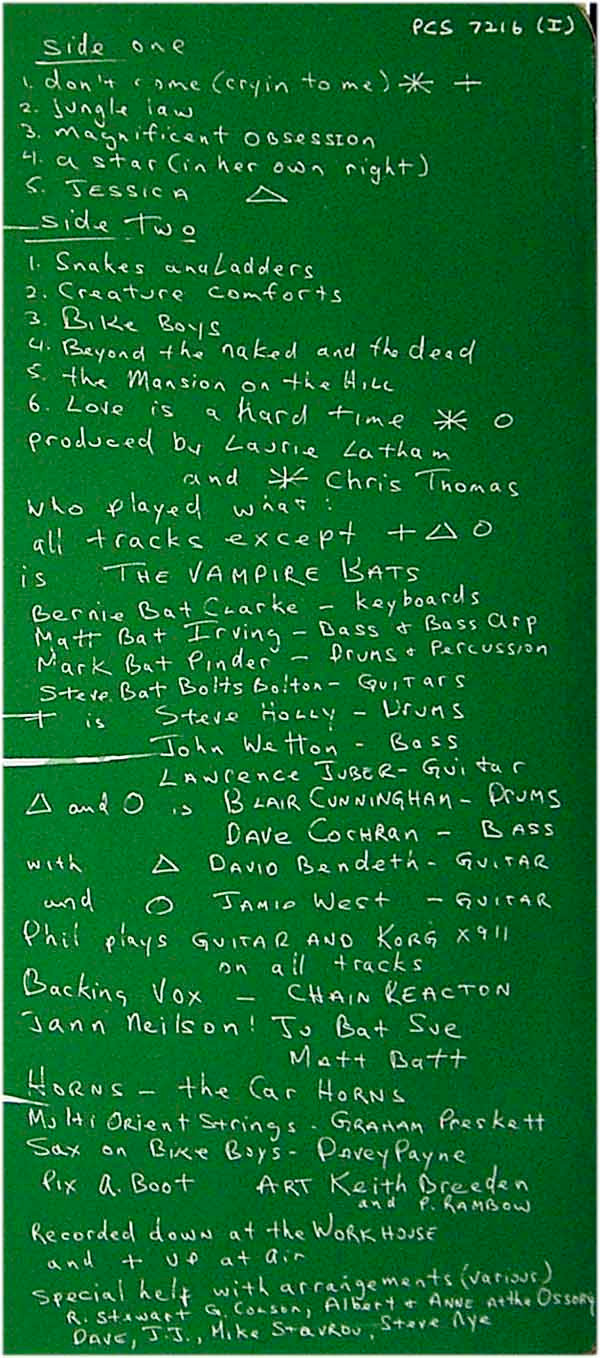 PCS 7216 (I)
side one
1. don't come (cryin to me) ✳ +
2. jungle law
3. magnificent obsession
4. a star (in her own right)
5. JESSICA △
side Two
1. Snakes and Ladders
2. Creature comforts
3. Bike Boys
4. Beyond the naked and the dead
5. the Mansion on the Hill
6. Love is a Hard time ✳ ○
produced by Laurie Latham
and ✳ Chris Thomas
who played what:
all tracks except + △ ○
is THE VAMPIRE BATS
Bernie Bat Clarke - Keyboards
Matt Bat Irving - Bass + Bass Arp
Mark Bat Pinder - Drums + Percussion
Steve Bat Bolts Bolton - Guitars
+ is Steve Holly - Drums
John Wetton - Bass
Lawrence Juber - Guitar
△ and ○ is BLAIR CUNNINGHAM - DRUMS
DAVE COCHRAN - BASS
with △ DAVID Bendeth - GUITAR
and ○ JAMIE West - GUITAR
Phil plays GUITAR AND KORG X911
on all tracks
Backing Vox - CHAIN REACTON
Jann Neilson! Ju Bat Sue
Matt Batt
HORNS - the Car HORNS
Multi Orient Strings - GRAHAM Preskett
Sax on Bike Boys - Davey Payne
Pix A. Boot ART Keith Breeden
and P. RAMBOW
Recorded down at the WORKHOUSE
and + up at air
special help with arrangements (various)
R. Stewart G. Colson, Albert + ANNE at the Ossory
DAVE, J.J., Mike Stavrou, Steve Nye